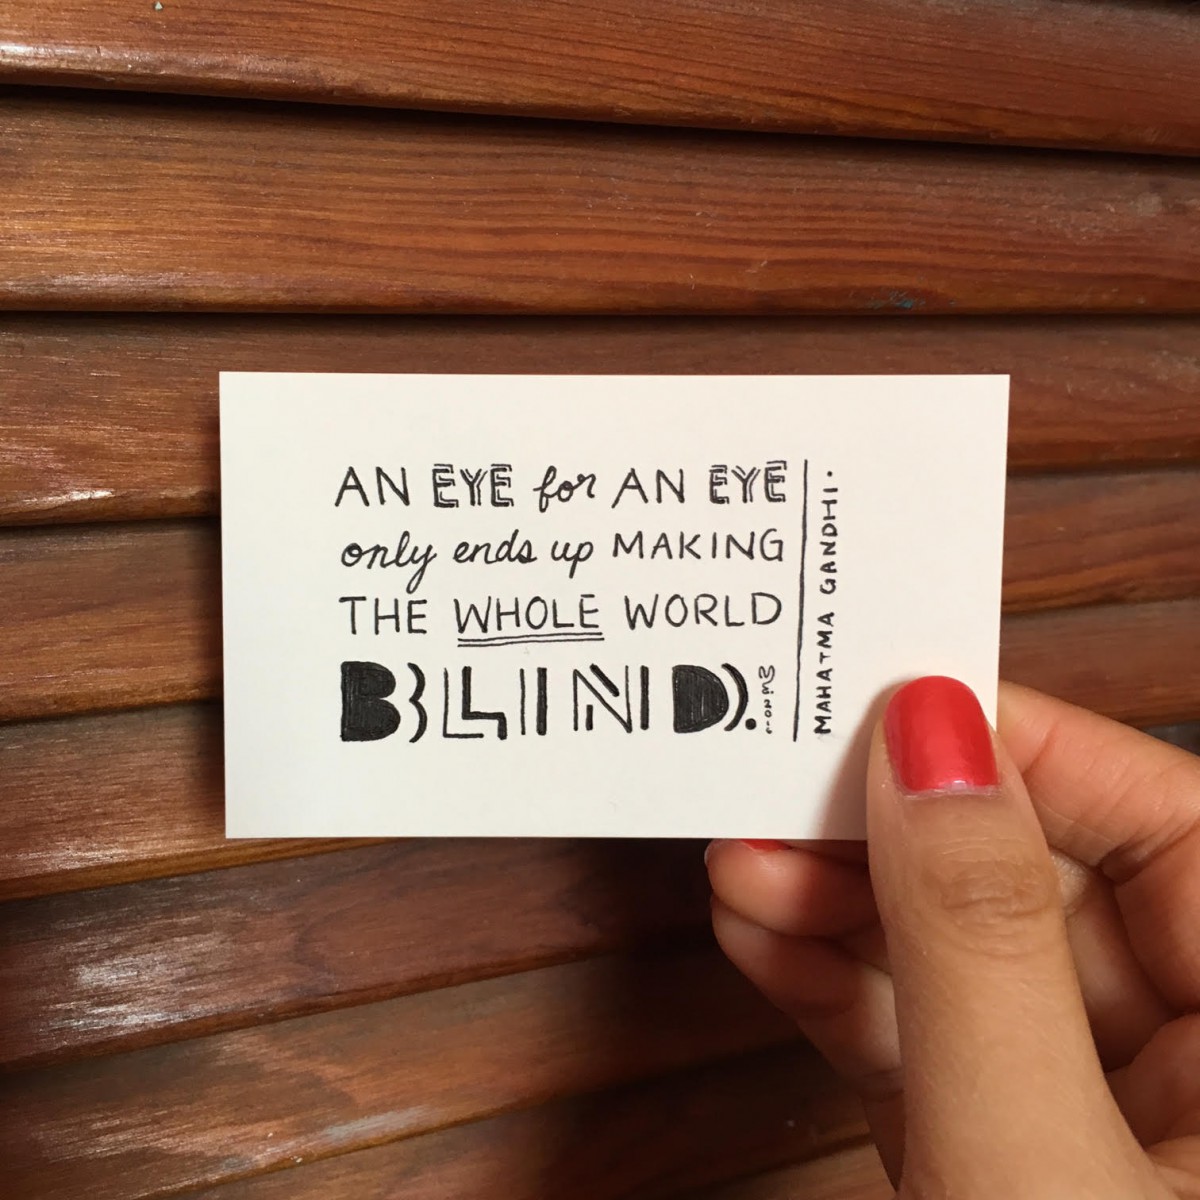 AN EYE for AN EYE
only ends up MAKING
THE WHOLE WORLD
BLIND.
MAHATMA GANDHI.